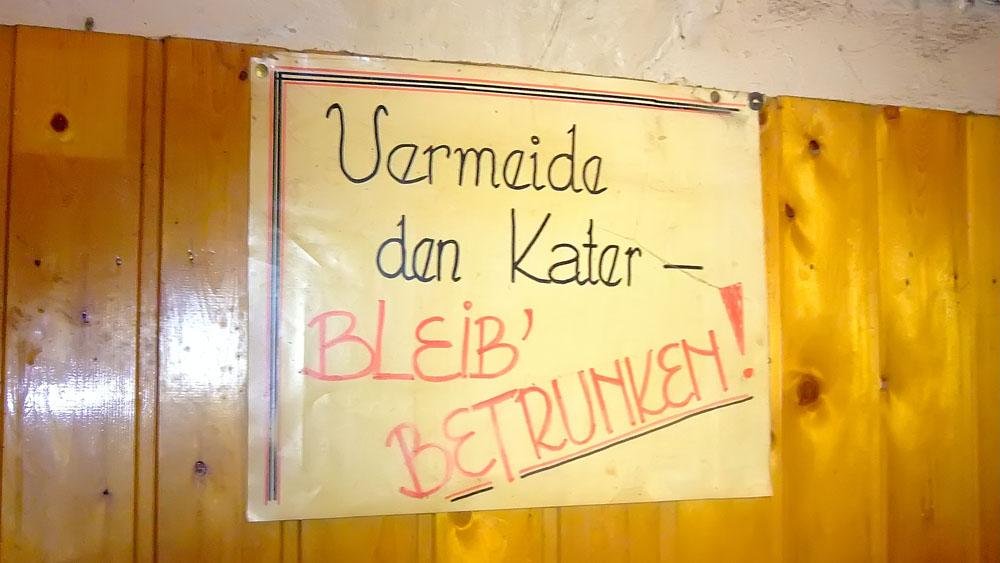 Vermeide
den Kater –
BLEIB'
BETRUNKEN!